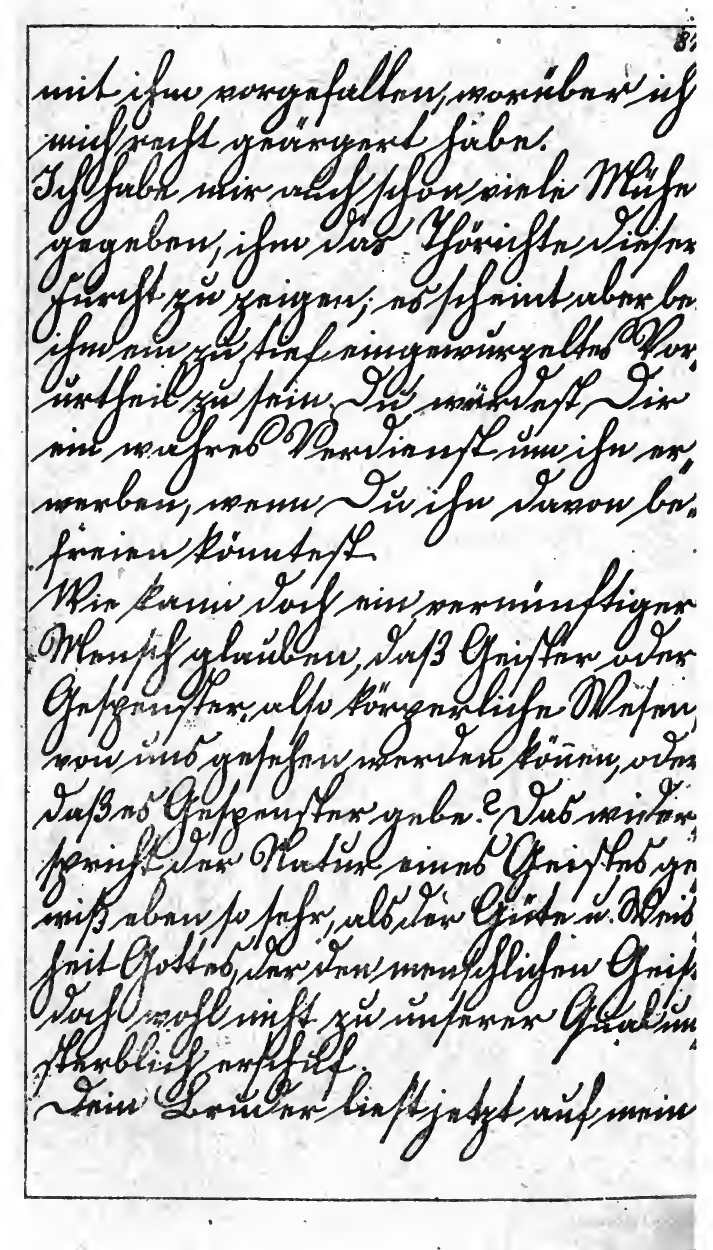 8
mit ihm vorgefallen, worüber ich
mich recht geärgert habe.
Ich habe mir auch schon viele Mühe
gegeben, ihm das Thörichte dieser
Furcht zu zeigen; es scheint aber be
ihm ein zu tief eingewurzeltes Vor-
urtheil zu sein. Du würdest Dir
ein wahres Verdienst um ihn er-
werben, wenn Du ihn davon be-
freien könntest.
Wie kann doch ein vernünftiger
Mensch glauben, daß Geister oder
Gespenster, also körperliche Wesen,
von uns gesehen werden kön̄en, oder
daß es Gespenster gebe? Das wider-
spricht der Natur eines Geistes ge
wiß eben so sehr, als der Güte u. Weis
heit Gottes, der den menschlichen Geis
doch wohl nicht zu unserer Qual un
sterblich erschuf.
Dein Bruder liest jetzt auf mein